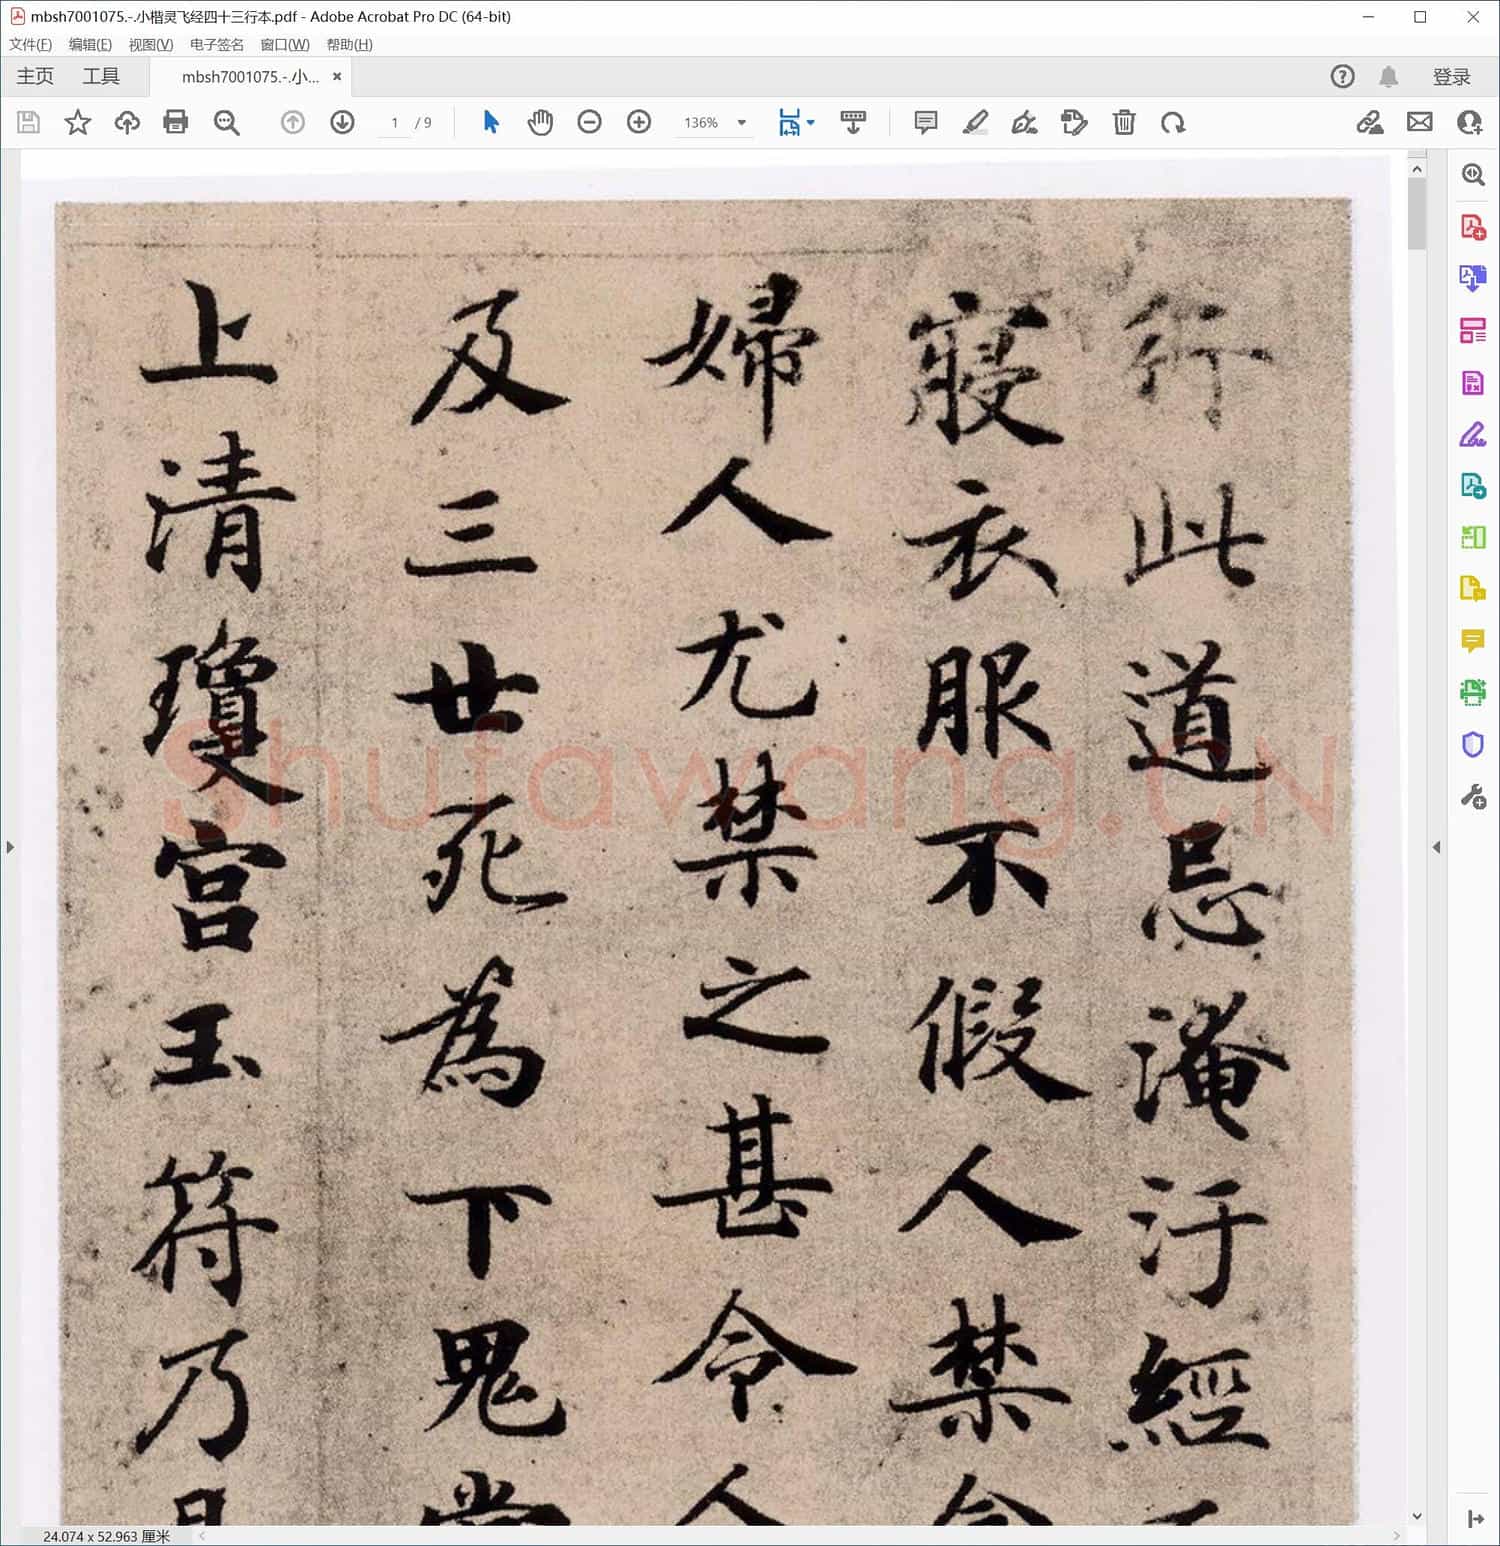 mbsh7001075.-.小楷灵飞经四十三行本.pdf - Adobe Acrobat Pro DC (64-bit)
文件(F) 编辑(E) 视图(V) 电子签名 窗口(W) 帮助(H)
主页 工具 mbsh7001075.-.小... 登录
1 / 9 136%
行此道忌淹汙經
寢衣服不假人禁
婦人尤禁之甚令
及三世死為下鬼
上清瓊宮玉符乃
Shufawang.CN
24.074 x 52.963 厘米